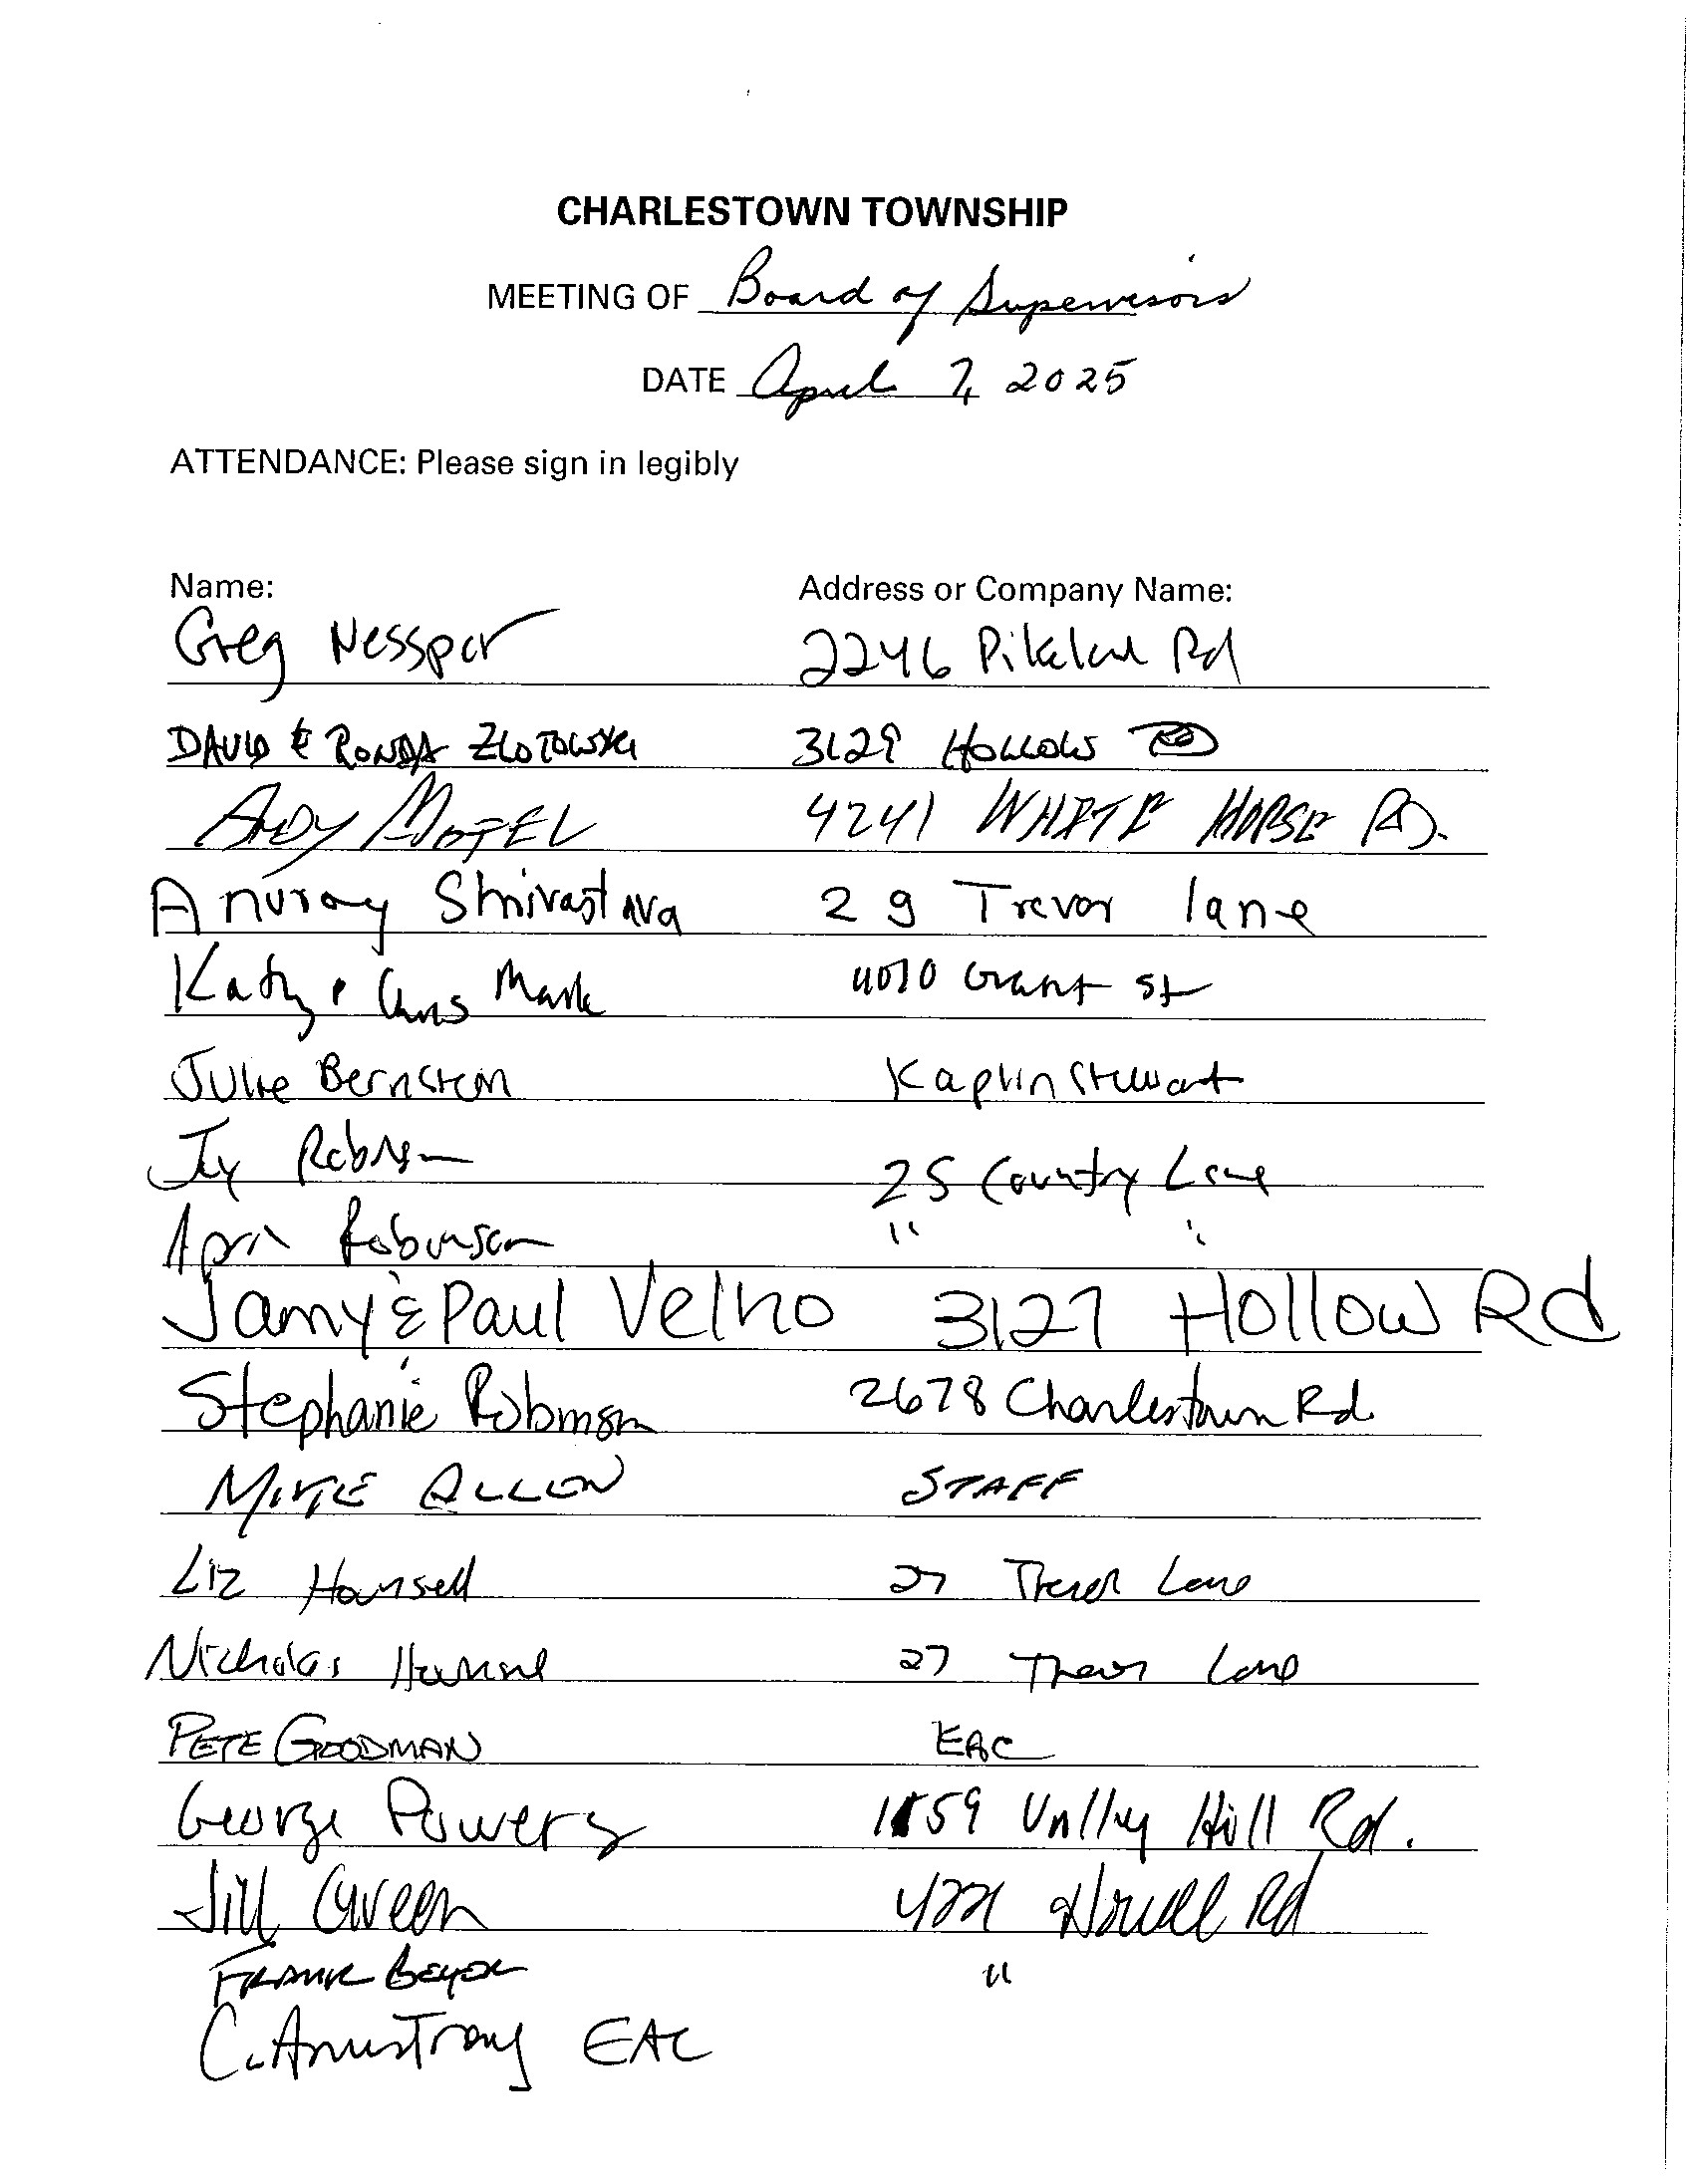 CHARLESTOWN TOWNSHIP
MEETING OF Board of Supervisors
DATE April 7, 2025
ATTENDANCE: Please sign in legibly
Name: Address or Company Name:
Greg Nesspor 2246 Pikeland Rd
DAVID & RONDA ZLOTOWSKI 3129 HOLLOW RD
ANDY MOTEL 4241 WHITE HORSE RD.
Anuray Shrivastava 29 Trevor lane
Kathy & Chris Mark 4010 Grant St
Julie Bernstein Kaplin Stewart
Jay Robinson 25 Country Lane
April Robinson " "
Jamy & Paul Velho 3127 Hollow Rd
Stephanie Robinson 2678 Charlestown Rd.
MIKE ALLEN STAFF
Liz Hounsell 27 Trevor Lane
Nicholas 27 Trevor Lane
PETE GOODMAN EAC
George Powers Valley Hill Rd.
Jill Green 4221 Howell Rd
FRANK BEYER "
C. Armstrong EAC